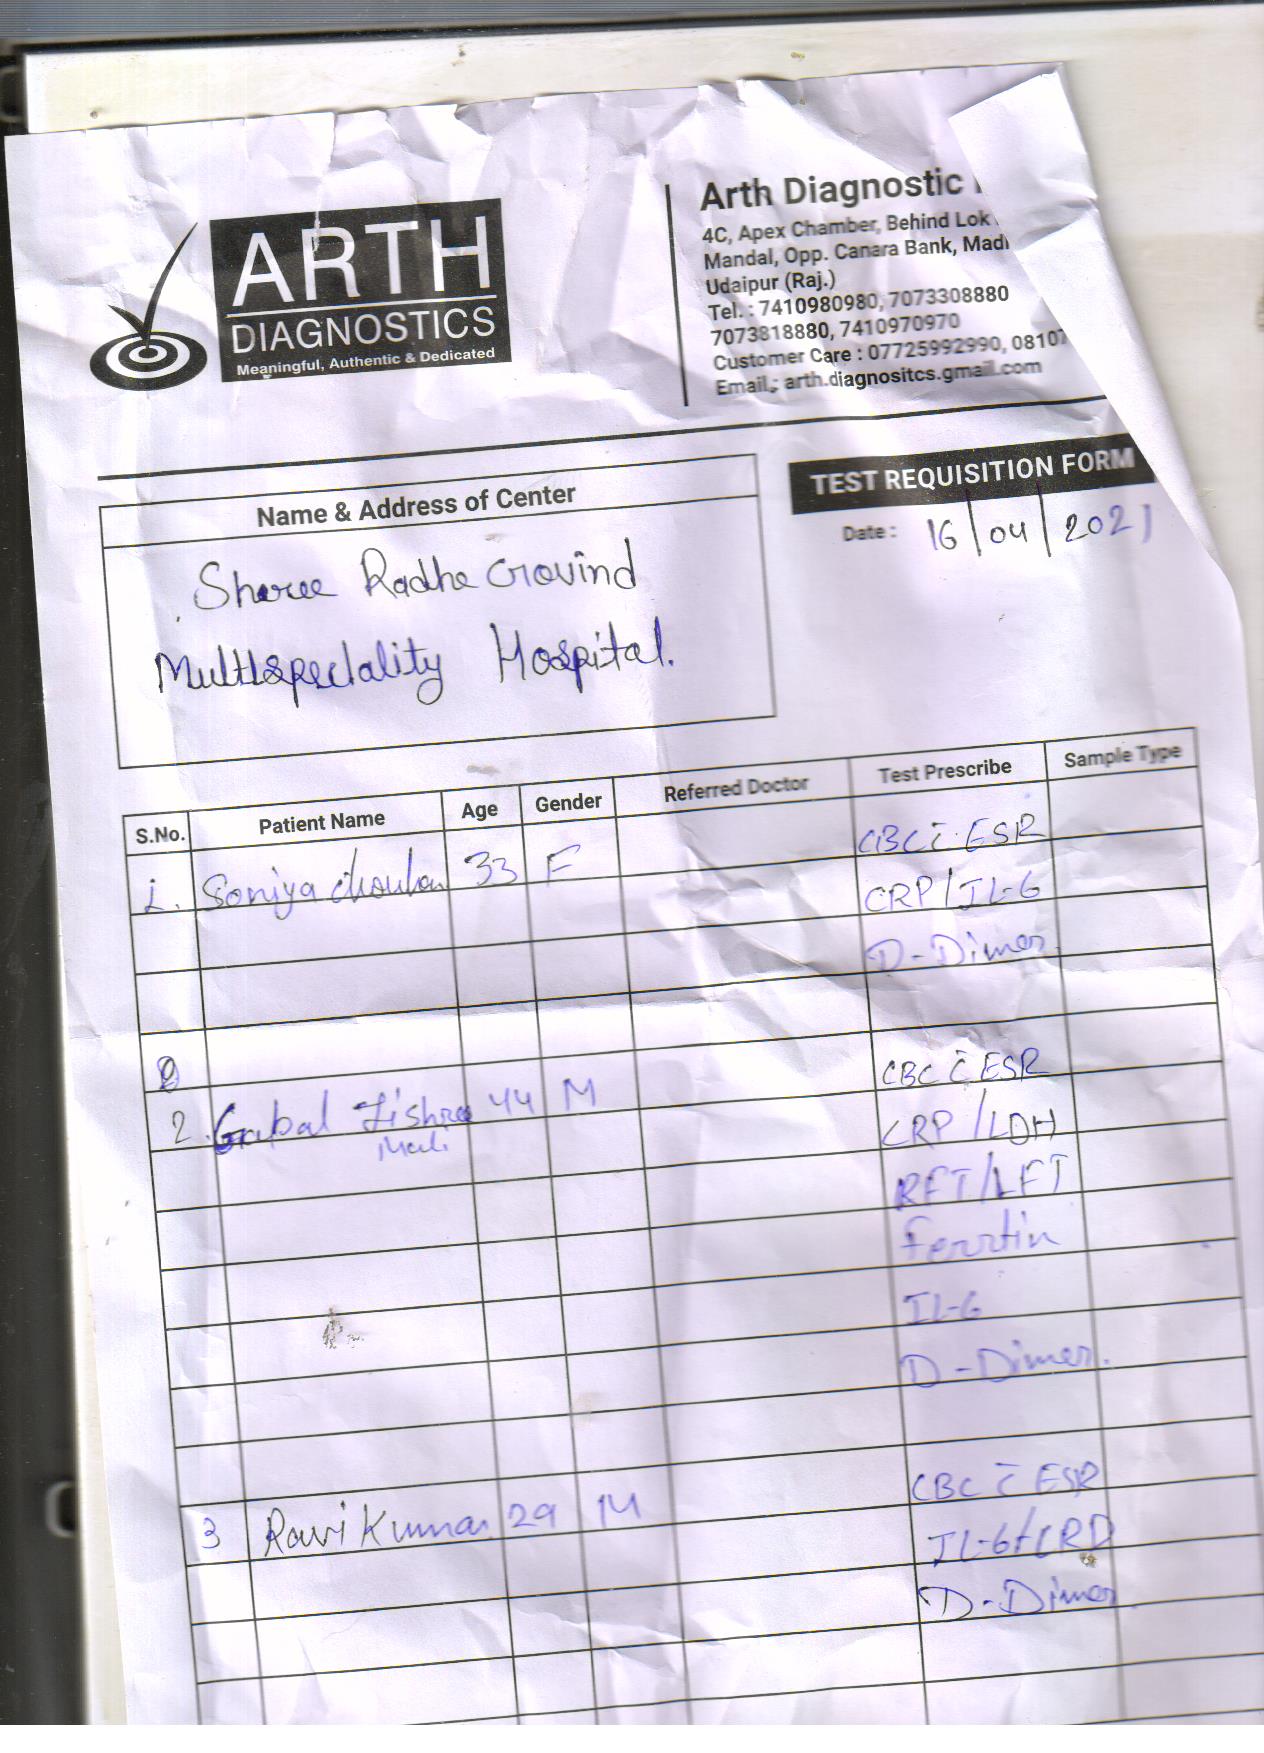 ARTH
DIAGNOSTICS
Meaningful, Authentic & Dedicated
Arth Diagnostic
4C, Apex Chamber, Behind Lok
Mandal, Opp. Canara Bank,
Udaipur (Raj.)
Tel. : 7410980980, 7073308880
7073818880, 7410970970
Customer Care : 07725992990,
Email : arth.diagnositcs.gmail.com
TEST REQUISITION FORM
Date : 16/04/2021
Name & Address of Center
Sheree Radhe Govind
Multispeciality Hospital.
S.No. Patient Name Age Gender Referred Doctor Test Prescribe Sample Type
1. Soniya Chouhan 33 F CBC c̄ ESR
CRP/IL-6
D-Dimer
2. 44 M CBC c̄ ESR
CRP/LDH
RFT/LFT
Ferrtin
IL-6
D-Dimer.
3 Ravi Kumar 29 M CBC c̄ ESR
IL-6+CRP
D-Dimer